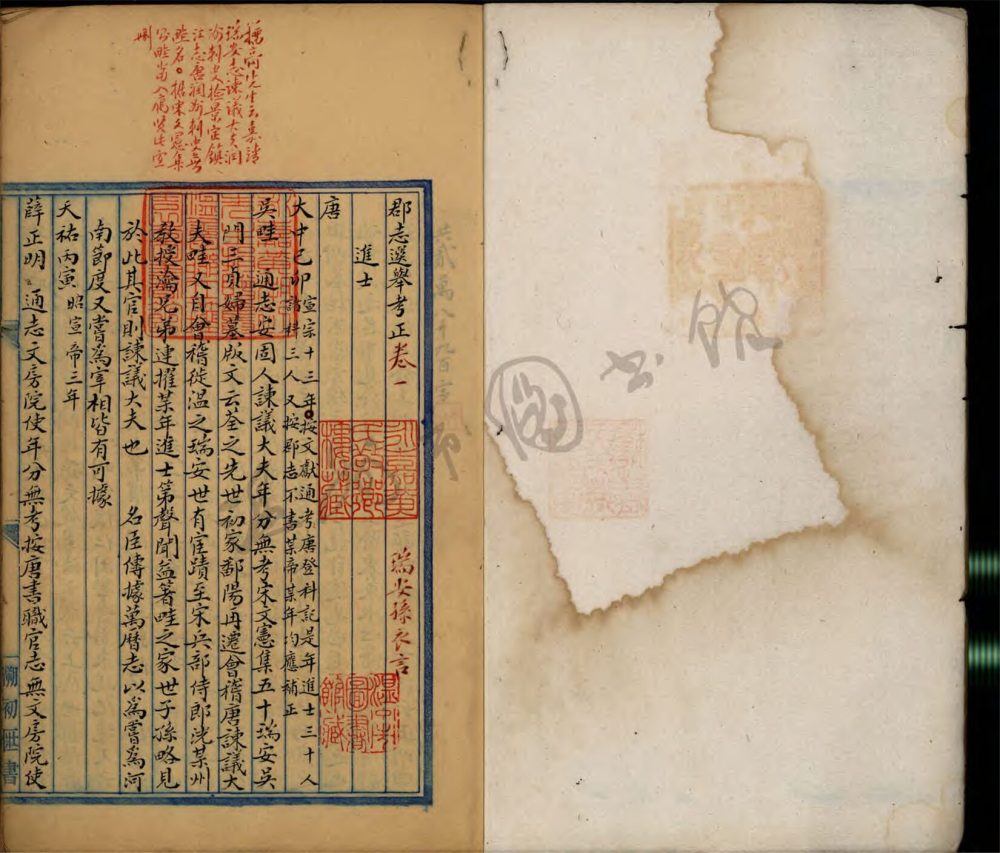 郡志選舉考正卷一
瑞安孫衣言
進士
唐
大中己卯宣宗十三年按文獻通考唐登科記是年進士三十人
諸科三人又按郡志不書某帝某年均應補正
吳畦 通志安固人諫議大夫年分無考宋文憲集五十瑞安吳
門三貞婦墓版文云荃之先世初家鄱陽再遷會稽唐諫議大
夫畦又自會稽徙溫之瑞安世有宦蹟至宋兵部侍郎洸某州
教授瀹兄弟連擢某年進士第聲聞益著畦之家世子孫略見
於此其官則諫議大夫也 名臣傳據萬曆志以爲嘗爲河
南節度又嘗爲宰相皆有可據
天祐丙寅 昭宣帝三年
薛正明 通志文房院使年分無考按唐書職官志無文房院使
瑞安志諫議大夫潤
畦名據宋文憲集
圖書館